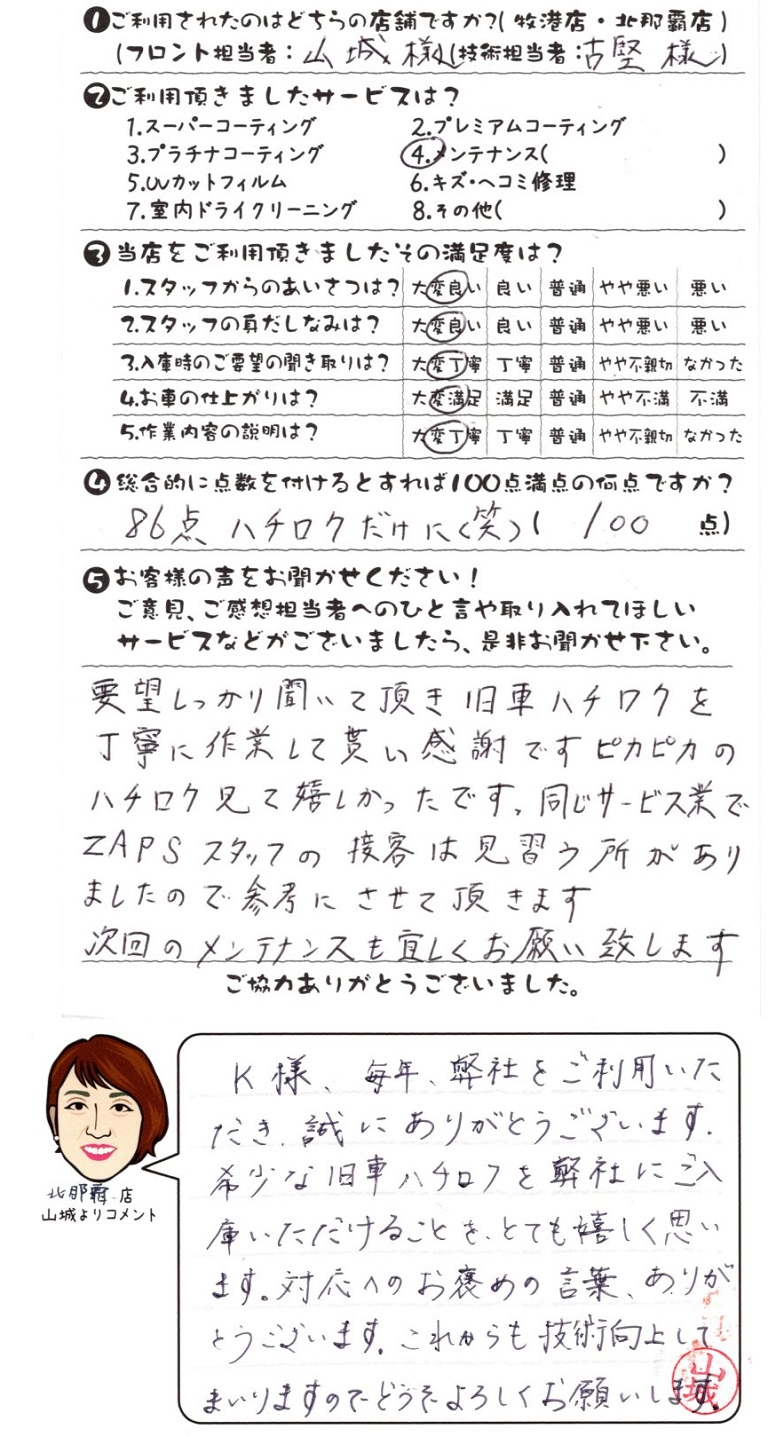 ❶ご利用されたのはどちらの店舗ですか?(牧港店・北那覇店)
(フロント担当者:山城様)(技術担当者:古堅様)
❷ご利用頂きましたサービスは?
1.スーパーコーティング 2.プレミアムコーティング
3.プラチナコーティング 4.メンテナンス( )
5.UVカットフィルム 6.キズ・ヘコミ修理
7.室内ドライクリーニング 8.その他( )
❸当店をご利用頂きましたその満足度は?
1.スタッフからのあいさつは? 大変良い 良い 普通 やや悪い 悪い
2.スタッフの身だしなみは? 大変良い 良い 普通 やや悪い 悪い
3.入庫時のご要望の聞き取りは? 大変丁寧 丁寧 普通 やや不親切 なかった
4.お車の仕上がりは? 大変満足 満足 普通 やや不満 不満
5.作業内容の説明は? 大変丁寧 丁寧 普通 やや不親切 なかった
❹総合的に点数を付けるとすれば100点満点の何点ですか?
86点 ハチロクだけに(笑)( 100 点)
❺お客様の声をお聞かせください!
ご意見、ご感想担当者へのひと言や取り入れてほしい
サービスなどがございましたら、是非お聞かせ下さい。
要望しっかり聞いて頂き旧車ハチロクを
丁寧に作業して貰い感謝ですピカピカの
ハチロク見て嬉しかったです。同じサービス業で
ZAPSスタッフの接客は見習う所があり
ましたので参考にさせて頂きます
次回のメンテナンスも宜しくお願い致します
ご協力ありがとうございました。
K様、毎年、弊社をご利用いた
だき、誠にありがとうございます。
希少な旧車ハチロクを弊社にご入
庫いただけることを、とても嬉しく思い
ます。対応へのお褒めの言葉、ありが
とうございます。これからも技術向上して
まいりますのでどうぞよろしくお願いします。
山城
北那覇店
山城よりコメント